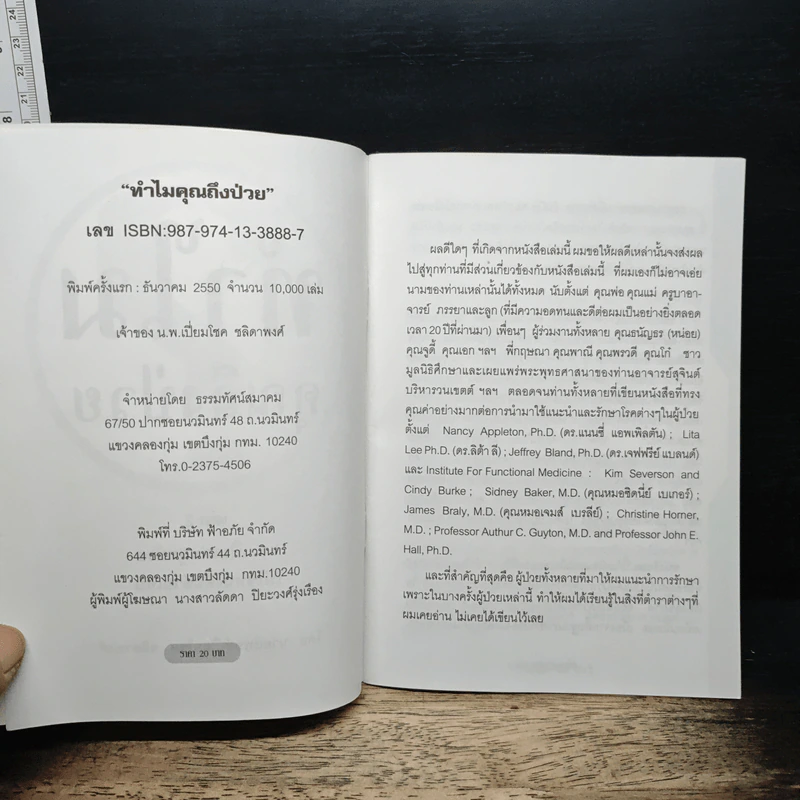 “ทำไมคุณถึงป่วย”
เลข ISBN:987-974-13-3888-7
พิมพ์ครั้งแรก : ธันวาคม 2550 จำนวน 10,000 เล่ม
เจ้าของ น.พ.เปี่ยมโชค ชลิดาพงศ์
จำหน่ายโดย ธรรมทัศน์สมาคม
67/50 ปากซอยนวมินทร์ 48 ถ.นวมินทร์
แขวงคลองกุ่ม เขตบึงกุ่ม กทม. 10240
โทร.0-2375-4506
พิมพ์ที่ บริษัท ฟ้าอภัย จำกัด
644 ซอยนวมินทร์ 44 ถ.นวมินทร์
แขวงคลองกุ่ม เขตบึงกุ่ม กทม.10240
ผู้พิมพ์ผู้โฆษณา นางสาวลัดดา ปิยะวงศ์รุ่งเรือง
ราคา 20 บาท
ผลดีใดๆ ที่เกิดจากหนังสือเล่มนี้ ผมขอให้ผลดีเหล่านั้นจงส่งผล
ไปสู่ทุกท่านที่มีส่วนเกี่ยวข้องกับหนังสือเล่มนี้ ที่ผมเองก็ไม่อาจเอ่ย
นามของท่านเหล่านั้นได้ทั้งหมด นับตั้งแต่ คุณพ่อ คุณแม่ ครูบาอา-
จารย์ ภรรยาและลูก (ที่มีความอดทนและดีต่อผมเป็นอย่างยิ่งตลอด
เวลา 20 ปีที่ผ่านมา) เพื่อนๆ ผู้ร่วมงานทั้งหลาย คุณธนัญธร (หน่อย)
คุณจูดี้ คุณเอก ฯลฯ พี่กฤษณา คุณพาณี คุณพรวดี คุณโก๋ ชาว
มูลนิธิศึกษาและเผยแพร่พระพุทธศาสนาของท่านอาจารย์สุจินต์
บริหารวนเขตต์ ฯลฯ ตลอดจนท่านทั้งหลายที่เขียนหนังสือที่ทรง
คุณค่าอย่างมากต่อการนำมาใช้แนะนำและรักษาโรคต่างๆในผู้ป่วย
ตั้งแต่ Nancy Appleton, Ph.D. (ดร.แนนซี่ แอพเพิลตัน) ; Lita
Lee Ph.D. (ดร.ลิต้า ลี) ; Jeffrey Bland, Ph.D. (ดร.เจฟฟรีย์ แบลนด์)
และ Institute For Functional Medicine : Kim Severson and
Cindy Burke ; Sidney Baker, M.D. (คุณหมอซิดนีย์ เบเกอร์) ;
James Braly, M.D. (คุณหมอเจมส์ เบรลีย์) ; Christine Horner,
M.D. ; Professor Authur C. Guyton, M.D. and Professor John E.
Hall, Ph.D.
และที่สำคัญที่สุดคือ ผู้ป่วยทั้งหลายที่มาให้ผมแนะนำการรักษา
เพราะในบางครั้งผู้ป่วยเหล่านี้ ทำให้ผมได้เรียนรู้ในสิ่งที่ตำราต่างๆที่
ผมเคยอ่าน ไม่เคยได้เขียนไว้เลย